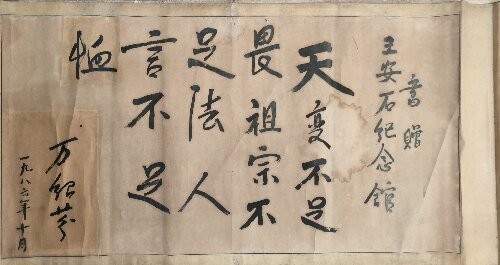 書贈
王安石紀念館
天变不足
畏祖宗不
足法人
言不足
恤
万绍芬
一九八六年十月